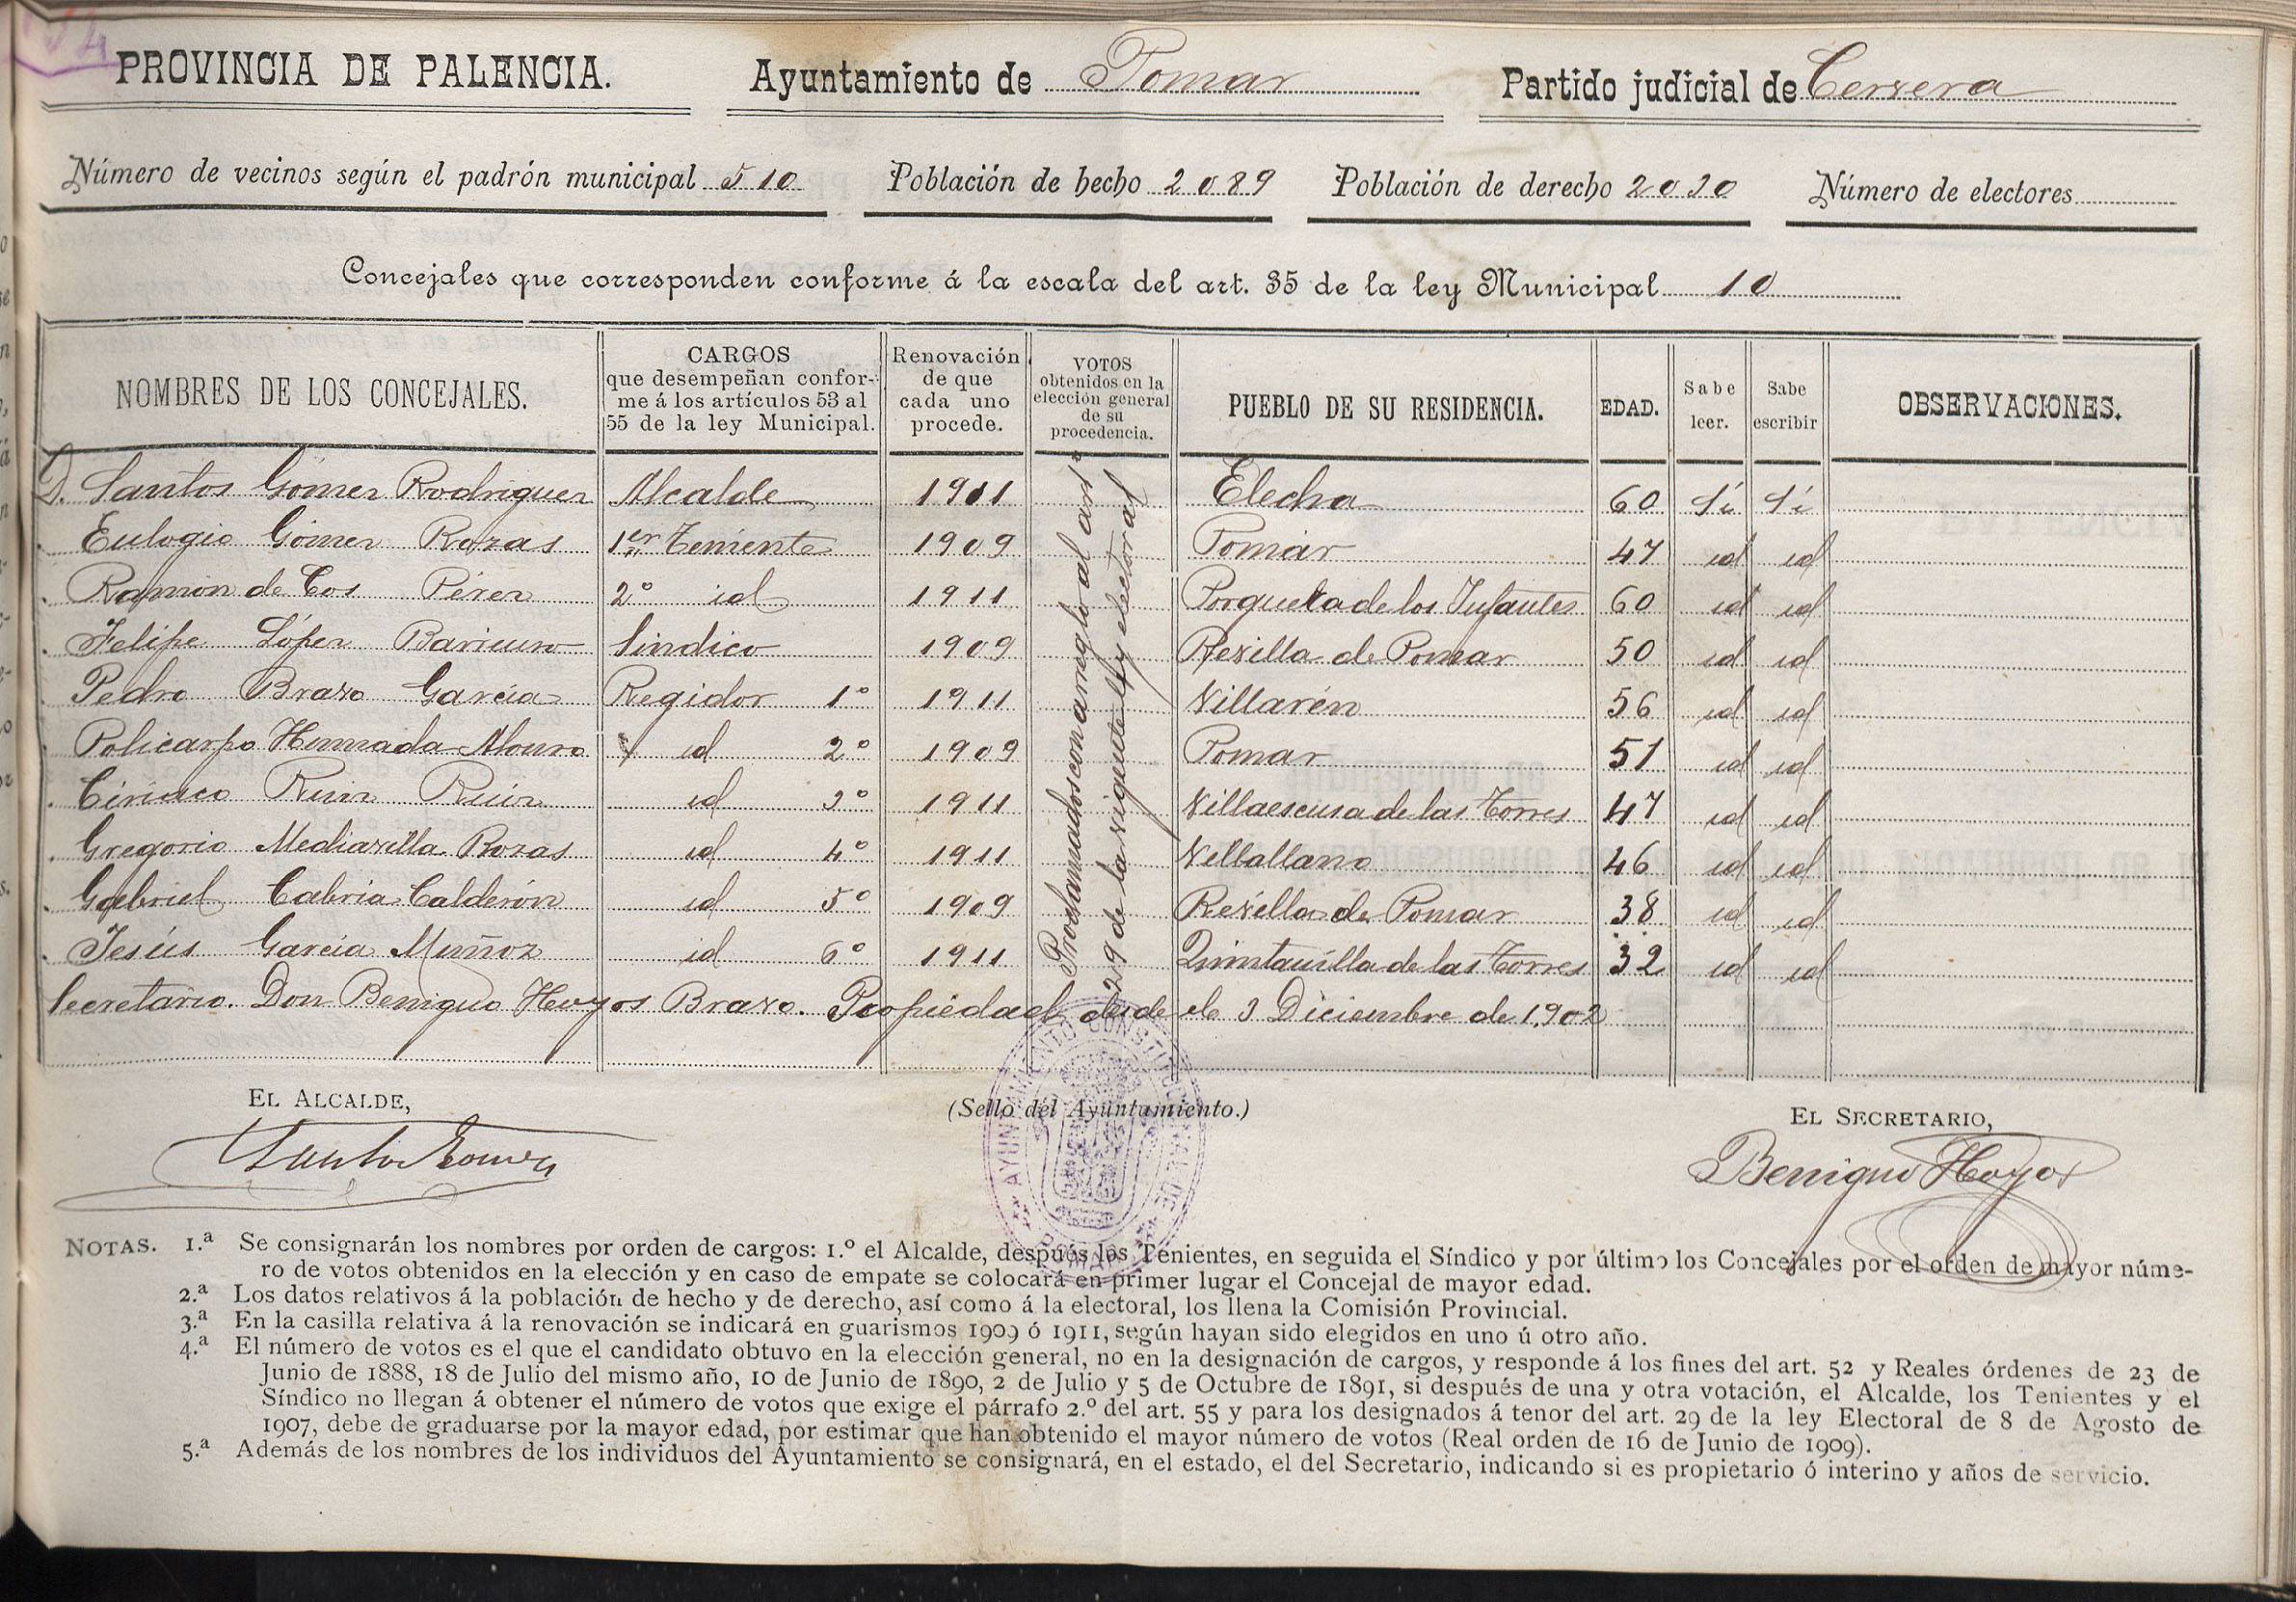 PROVINCIA DE PALENCIA. Ayuntamiento de Pomar Partido judicial de Cervera
Número de vecinos según el padrón municipal 510 Población de hecho 2089 Población de derecho 2030 Número de electores
Concejales que corresponden conforme á la escala del art. 35 de la ley Municipal 10
NOMBRES DE LOS CONCEJALES. CARGOS que desempeñan conforme á los artículos 53 al 55 de la ley Municipal. Renovación de que cada uno procede. VOTOS obtenidos en la elección general de su procedencia. PUEBLO DE SU RESIDENCIA. EDAD. Sabe leer. Sabe escribir OBSERVACIONES.
D. Santos Gómez Rodriguez Alcalde 1911 Elecha 60 Sí Sí
Eulogio Gómez Rozas 1er Teniente 1909 Pomar 47 id id
Ramón de Cos Pérez 2º id 1911 Porquera de los Infantes 60 id id
Felipe López Barriuso Sindico 1909 Revilla de Pomar 50 id id
Pedro Bravo García Regidor 1º 1911 Villarén 56 id id
Policarpo Humada Alonso id 2º 1909 Pomar 51 id id
Ciriaco Ruiz Ruiz id 3º 1911 Villaescusa de las Torres 47 id id
Gregorio Mediavilla Rozas id 4º 1911 Villallano 46 id id
Gabriel Cabria Calderón id 5º 1909 Revilla de Pomar 38 id id
Jesús García Muñoz id 6º 1911 Quintanilla de las Torres 32 id id
Proclamados con arreglo al artº
29 de la vigente ley electoral
Secretario. Don Benigno Hoyos Bravo. Propiedad desde el 3 Diciembre de 1.902
EL ALCALDE, (Sello del Ayuntamiento.) EL SECRETARIO,
Santos Gómez Benigno Hoyos
AYUNTAMIENTO CONSTITUCIONAL DE POMAR
NOTAS. 1.ª Se consignarán los nombres por orden de cargos: 1.º el Alcalde, después los Tenientes, en seguida el Síndico y por último los Concejales por el orden de mayor núme-
ro de votos obtenidos en la elección y en caso de empate se colocará en primer lugar el Concejal de mayor edad.
2.ª Los datos relativos á la población de hecho y de derecho, así como á la electoral, los llena la Comisión Provincial.
3.ª En la casilla relativa á la renovación se indicará en guarismos 1909 ó 1911, según hayan sido elegidos en uno ú otro año.
4.ª El número de votos es el que el candidato obtuvo en la elección general, no en la designación de cargos, y responde á los fines del art. 52 y Reales órdenes de 23 de
Junio de 1888, 18 de Julio del mismo año, 10 de Junio de 1890, 2 de Julio y 5 de Octubre de 1891, si después de una y otra votación, el Alcalde, los Tenientes y el
Síndico no llegan á obtener el número de votos que exige el párrafo 2.º del art. 55 y para los designados á tenor del art. 29 de la ley Electoral de 8 de Agosto de
1907, debe de graduarse por la mayor edad, por estimar que han obtenido el mayor número de votos (Real orden de 16 de Junio de 1909).
5.ª Además de los nombres de los individuos del Ayuntamiento se consignará, en el estado, el del Secretario, indicando si es propietario ó interino y años de servicio.